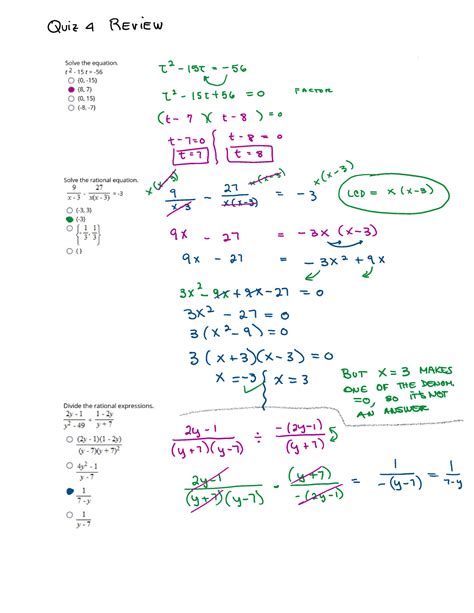 Quiz 4 Review
Solve the equation.
t² - 15 t = -56
{0, -15}
{8, 7}
{0, 15}
{-8, -7}
t² - 15t = -56
t² - 15t + 56 = 0 FACTOR
(t - 7)(t - 8) = 0
t - 7 = 0 t - 8 = 0
t = 7 t = 8
Solve the rational equation.
9/(x - 3) - 27/(x(x - 3)) = -3
{-3, 3}
{-3}
{-1/3, 1/3}
{ }
x(x-3) 9/(x-3) - 27/(x(x-3)) x(x-3) = -3 x(x-3)
LCD = x(x-3)
9x - 27 = -3x (x-3)
9x - 27 = -3x² + 9x
3x² - 9x + 9x - 27 = 0
3x² - 27 = 0
3(x² - 9) = 0
3(x+3)(x-3) = 0
x = -3 x = 3
BUT x = 3 MAKES
ONE OF THE DENOM.
=0, SO IT'S NOT
AN ANSWER
Divide the rational expressions.
(2y - 1)/(y² - 49) ÷ (1 - 2y)/(y + 7)
(2y - 1)(1 - 2y)/((y - 7)(y + 7)²)
(4y² - 1)/(y - 7)
1/(7 - y)
1/(y - 7)
(2y-1)/((y+7)(y-7)) ÷ -(2y-1)/(y+7)
(2y-1)/((y+7)(y-7)) · (y+7)/(-(2y-1)) = 1/(-(y-7)) = 1/(7-y)